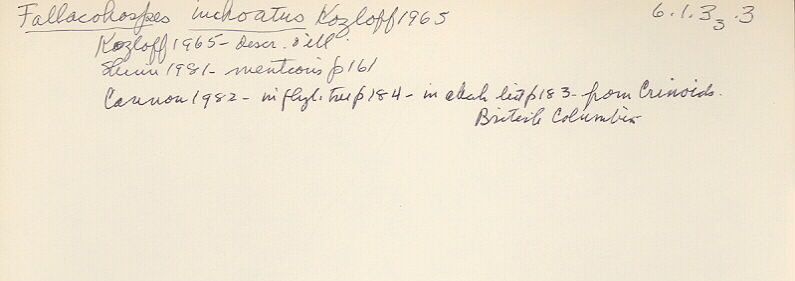 Fallacohospes inchoatus Kozloff 1965 6.1.3₃.3
Kozloff 1965 - Descr. & ill
1981 - mentions p161
Cannon 1982 - in phyl. tree p184 - in chech list p183 - from Crinoids.
British Columbia